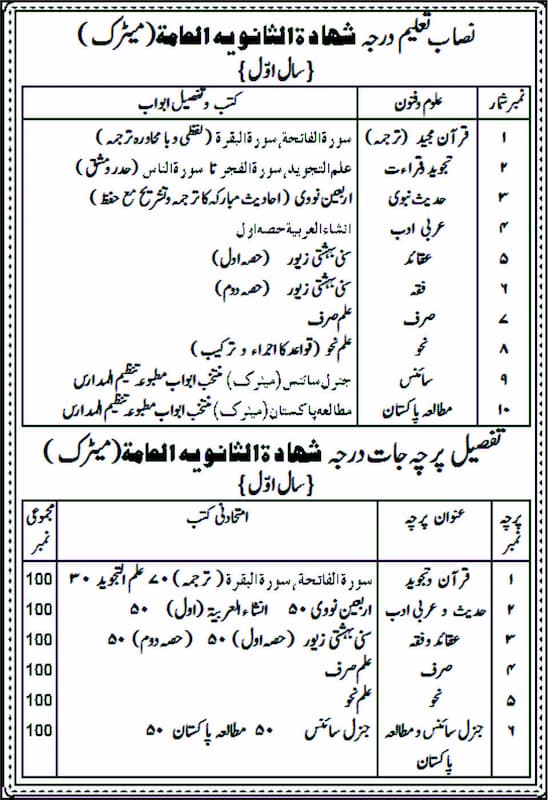 نصاب تعلیم درجہ شهادة الثانويه العامة (میٹرک)
{سال اوّل}
نمبر شمار علوم و فنون کتب و تفصیل ابواب
۱ قرآن مجید (ترجمہ) سورۃ الفاتحۃ، سورۃ البقرۃ (لفظی و با محاورہ ترجمہ)
۲ تجوید و قراءت علم التجوید، سورۃ الفجر تا سورۃ الناس (حدر و مشق)
۳ حدیث نبوی اربعین نووی (احادیث مبارکہ کا ترجمہ و تشریح مع حفظ)
۴ عربی ادب انشاء العربیۃ حصہ اول
۵ عقائد سنی بہشتی زیور (حصہ اول)
۶ فقہ سنی بہشتی زیور (حصہ دوم)
۷ صرف علم صرف
۸ نحو علم نحو (قواعد کا اجراء و ترکیب)
۹ سائنس جنرل سائنس (میٹرک) منتخب ابواب مطبوعہ تنظیم المدارس
۱۰ مطالعہ پاکستان مطالعہ پاکستان (میٹرک) منتخب ابواب مطبوعہ تنظیم المدارس
تفصیل پرچہ جات درجہ شهادة الثانويه العامة (میٹرک)
{سال اوّل}
پرچہ نمبر عنوان پرچہ امتحانی کتب مجموعی نمبر
۱ قرآن و تجوید سورۃ الفاتحۃ، سورۃ البقرۃ (ترجمہ) ۷۰ علم التجوید ۳۰ 100
۲ حدیث و عربی ادب اربعین نووی ۵۰ انشاء العربیۃ (اول) ۵۰ 100
۳ عقائد و فقہ سنی بہشتی زیور (حصہ اول) ۵۰ (حصہ دوم) ۵۰ 100
۴ صرف علم صرف 100
۵ نحو علم نحو 100
۶ جنرل سائنس و مطالعہ جنرل سائنس ۵۰ مطالعہ پاکستان ۵۰ 100
پاکستان